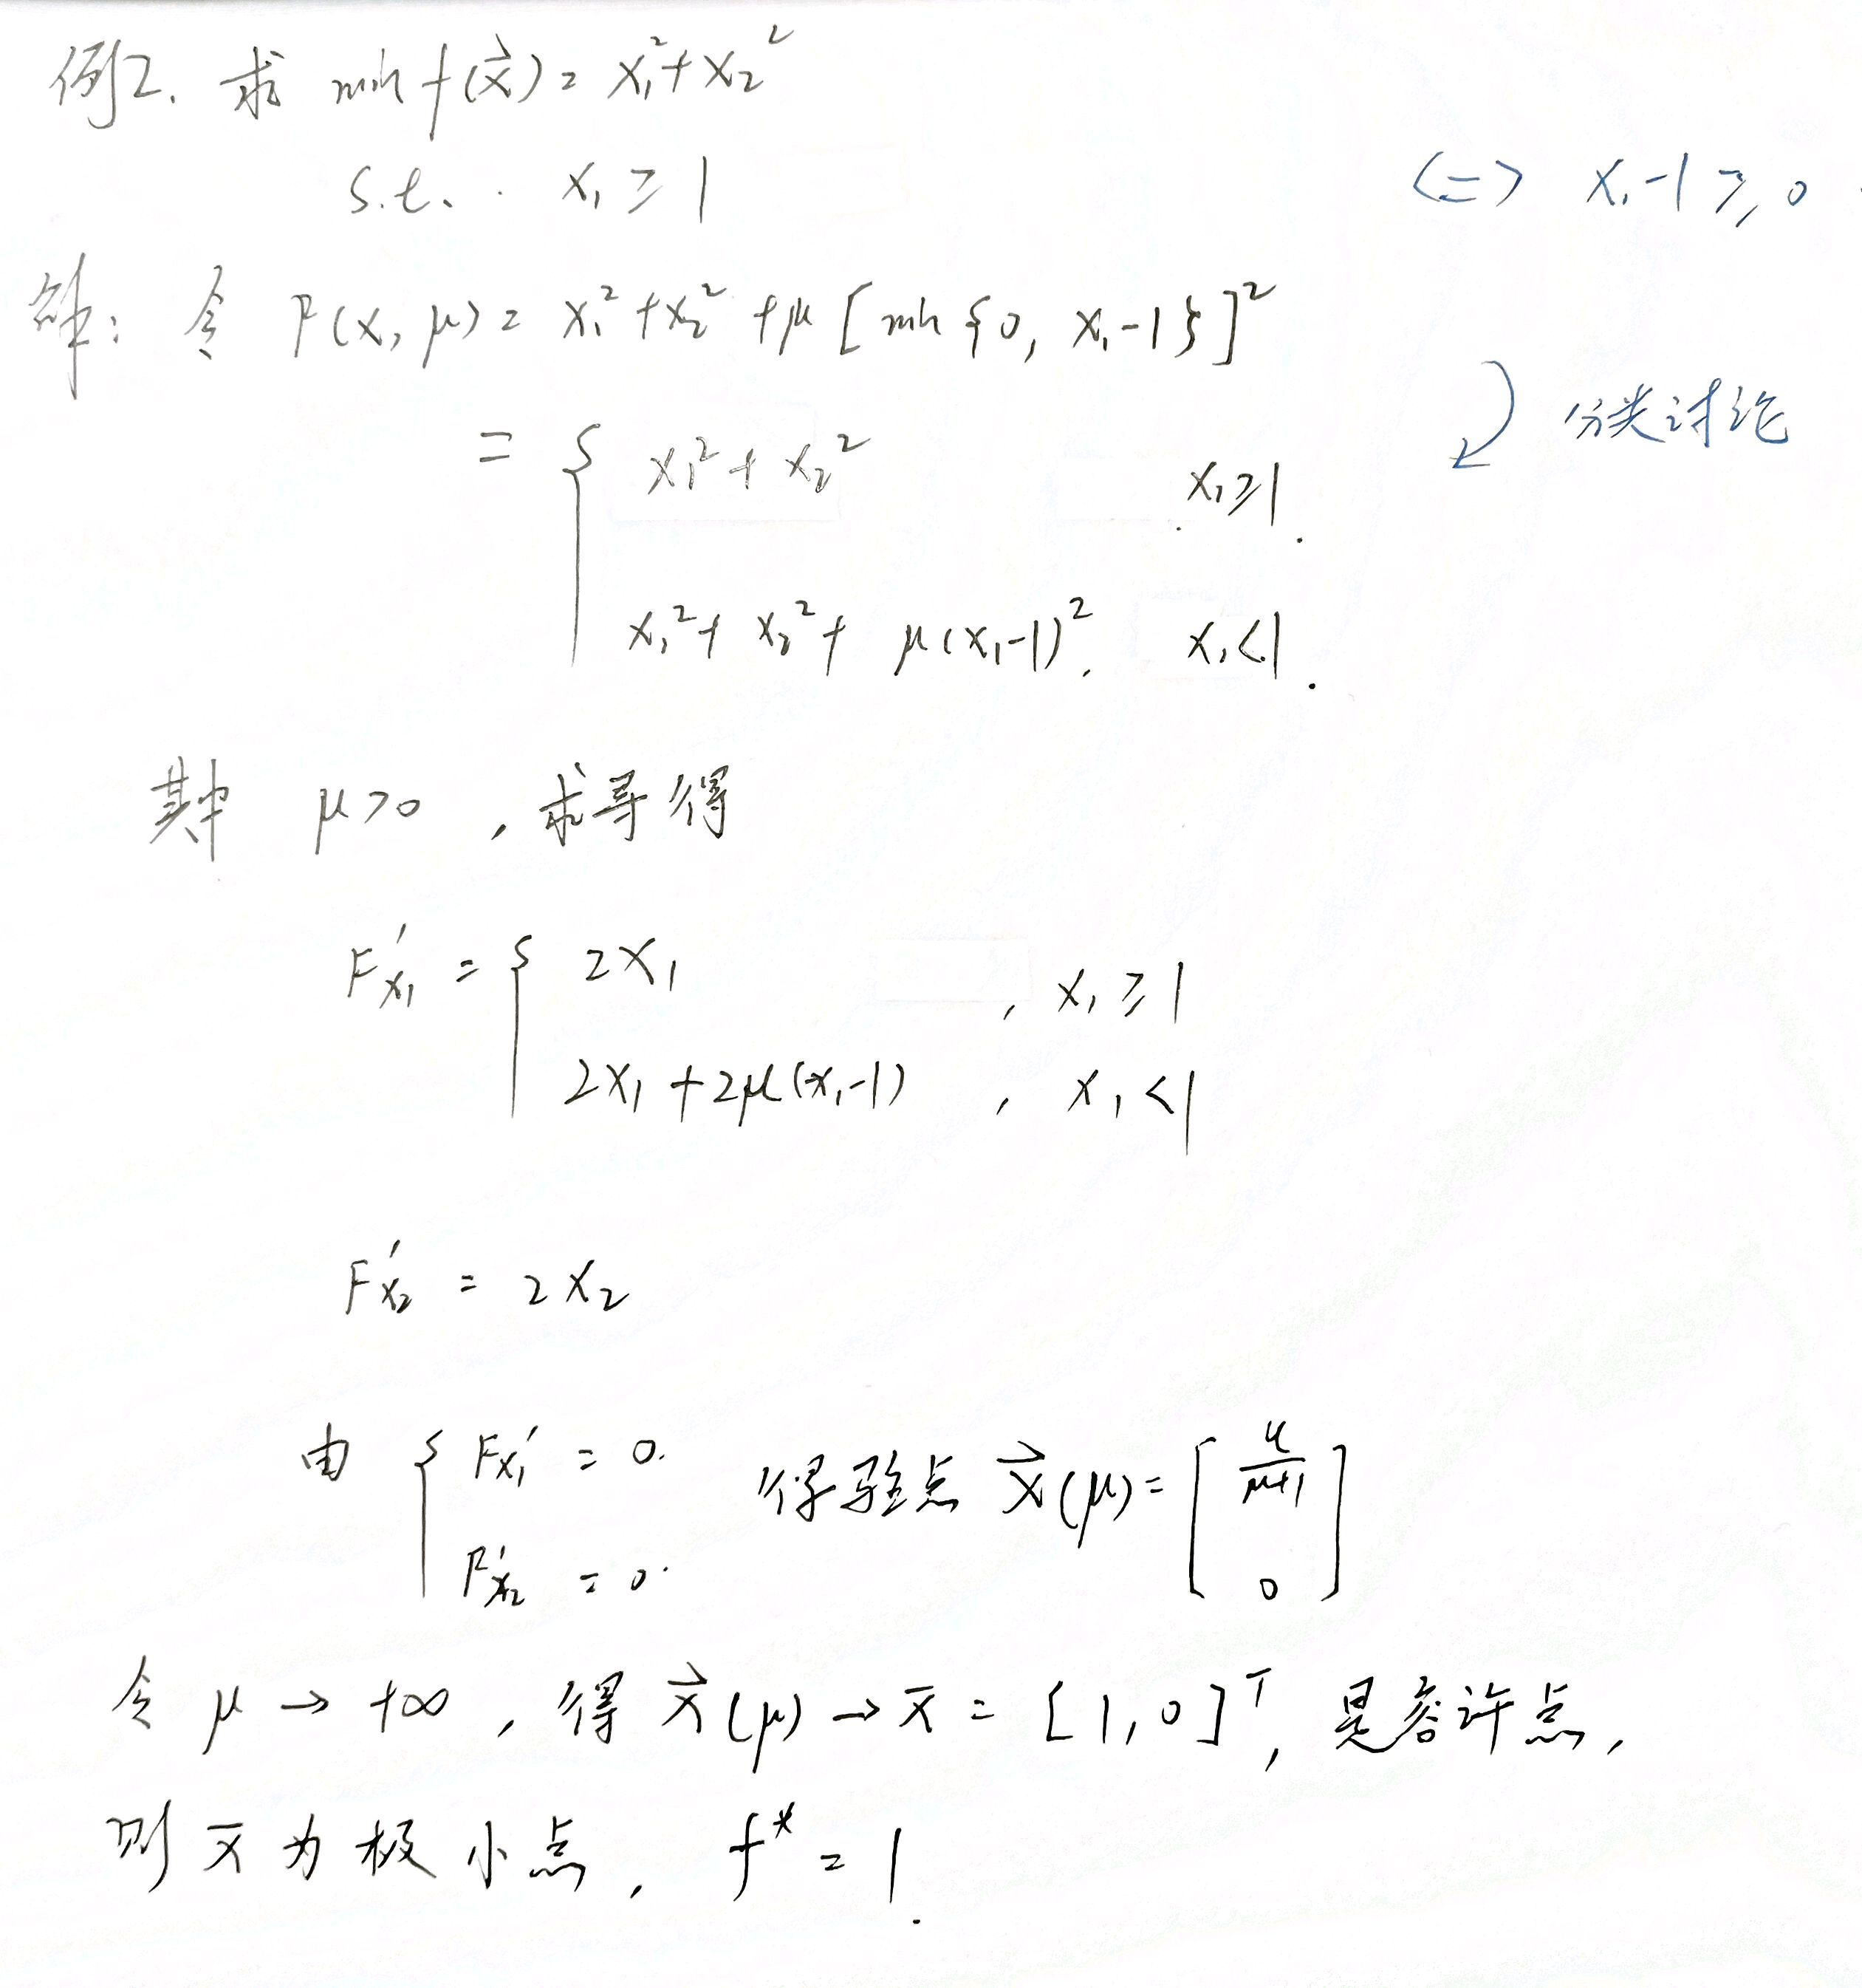 例2. 求 min f(x⃗) = x₁² + x₂²
s.t. x₁ ≥ 1 <=> x₁-1 ≥ 0
解: 令 F(x, μ) = x₁² + x₂² + μ [min {0, x₁-1}]²
= { x₁² + x₂² x₁ ≥ 1. 分类讨论
x₁² + x₂² + μ(x₁-1)². x₁ < 1.
其中 μ>0 , 求导得
F'x₁ = { 2x₁ , x₁ ≥ 1
2x₁ + 2μ(x₁-1) , x₁ < 1
F'x₂ = 2x₂
由 { F'x₁ = 0. 得驻点 x⃗(μ) = [ μ/(μ+1)
F'x₂ = 0. 0 ]
令 μ → +∞ , 得 x⃗(μ) → x̄ = [1, 0]ᵀ, 是容许点,
则 x̄ 为极小点, f* = 1.